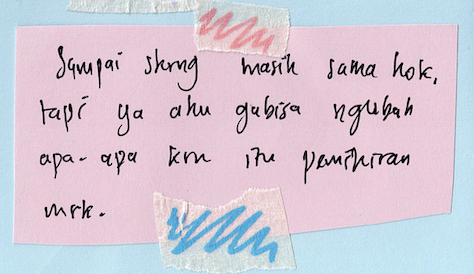 Sampai skrng masih sama kok,
tapi ya aku gabisa ngubah
apa-apa krn itu pemikiran
mrk.